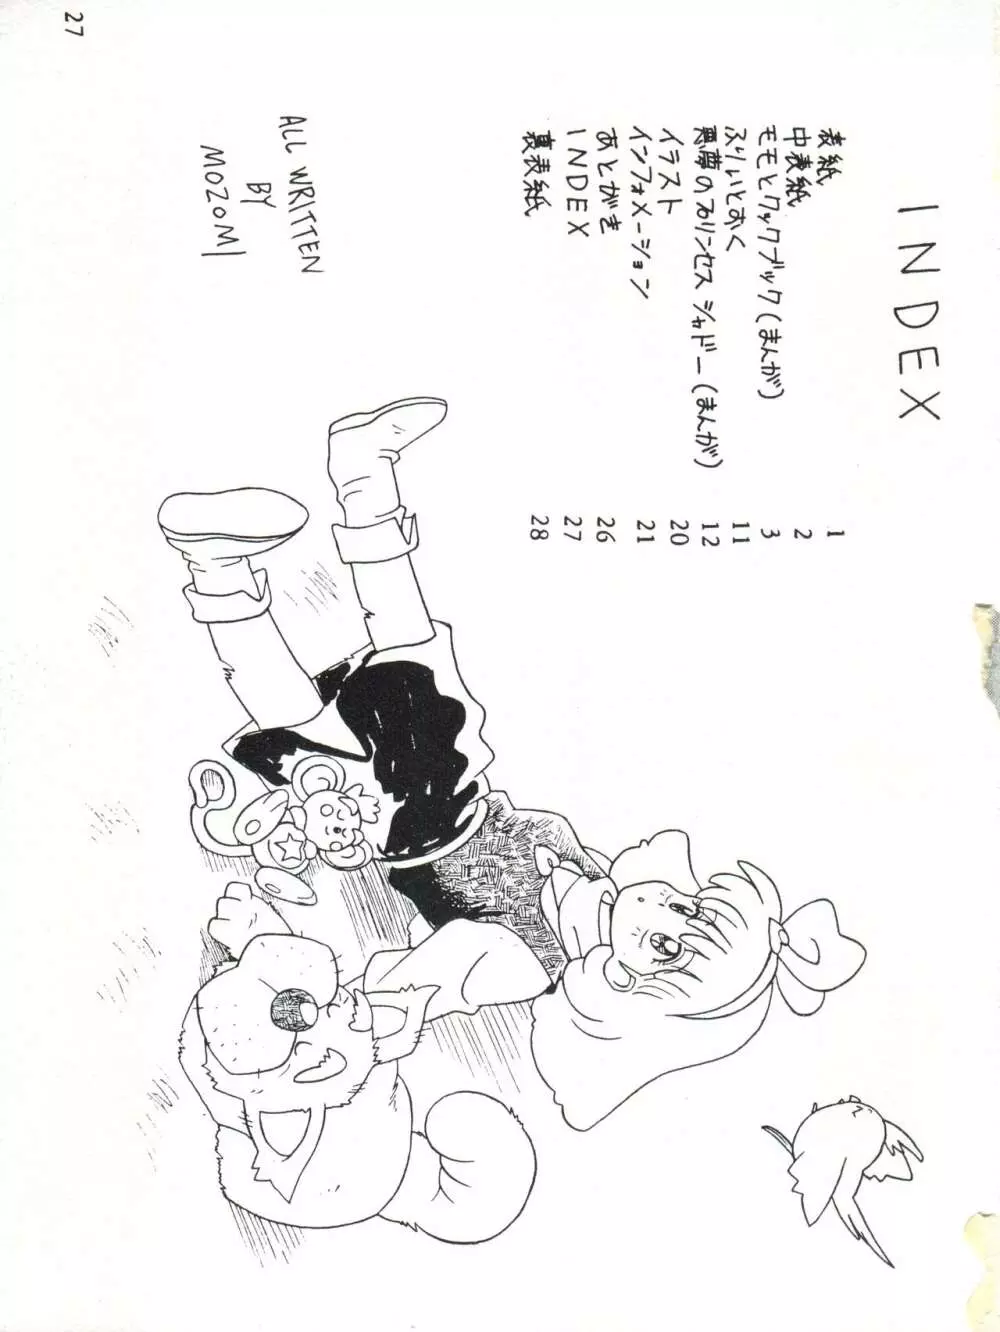 INDEX
表紙 1
中表紙 2
モモとクックブック(まんが) 3
ふりいとおく 11
悪夢のプリンセス シャドー(まんが) 12
イラスト 20
インフォメーション 21
あとがき 26
INDEX 27
裏表紙 28
ALL WRITTEN
BY
MOZOMI
27